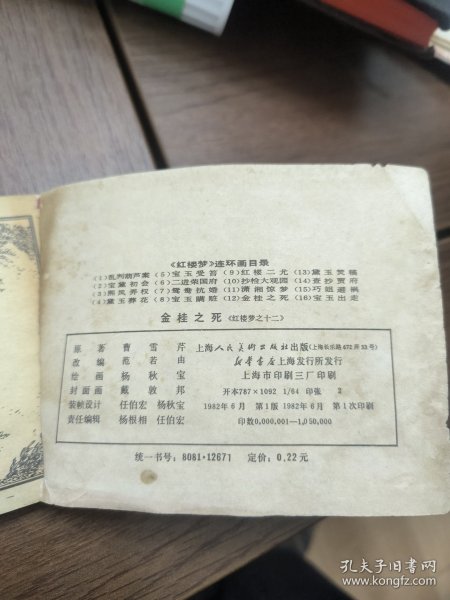 《红楼梦》连环画目录
(1)乱判葫芦案 (5)宝玉受笞 (9)红楼二尤 (13)黛玉焚稿
(2)宝黛初会 (6)二进荣国府 (10)抄检大观园 (14)查抄贾府
(3)熙凤弄权 (7)鸳鸯抗婚 (11)潇湘惊梦 (15)巧姐避祸
(4)黛玉葬花 (8)宝玉瞒赃 (12)金桂之死 (16)宝玉出走
金桂之死 《红楼梦之十二》
原著 曹雪芹 上海人民美术出版社出版 (上海长乐路672弄33号)
改编 范若由 新华书店上海发行所发行
绘画 杨秋宝 上海市印刷三厂印刷
封面画 戴敦邦 开本787×1092 1/64 印张 2
装帧设计 任伯宏 杨秋宝 1982年6月 第1版 1982年6月 第1次印刷
责任编辑 杨根相 任伯宏 印数0,000,001—1,050,000
统一书号：8081·12671 定价：0.22元
孔夫子旧书网
www.kongfz.com